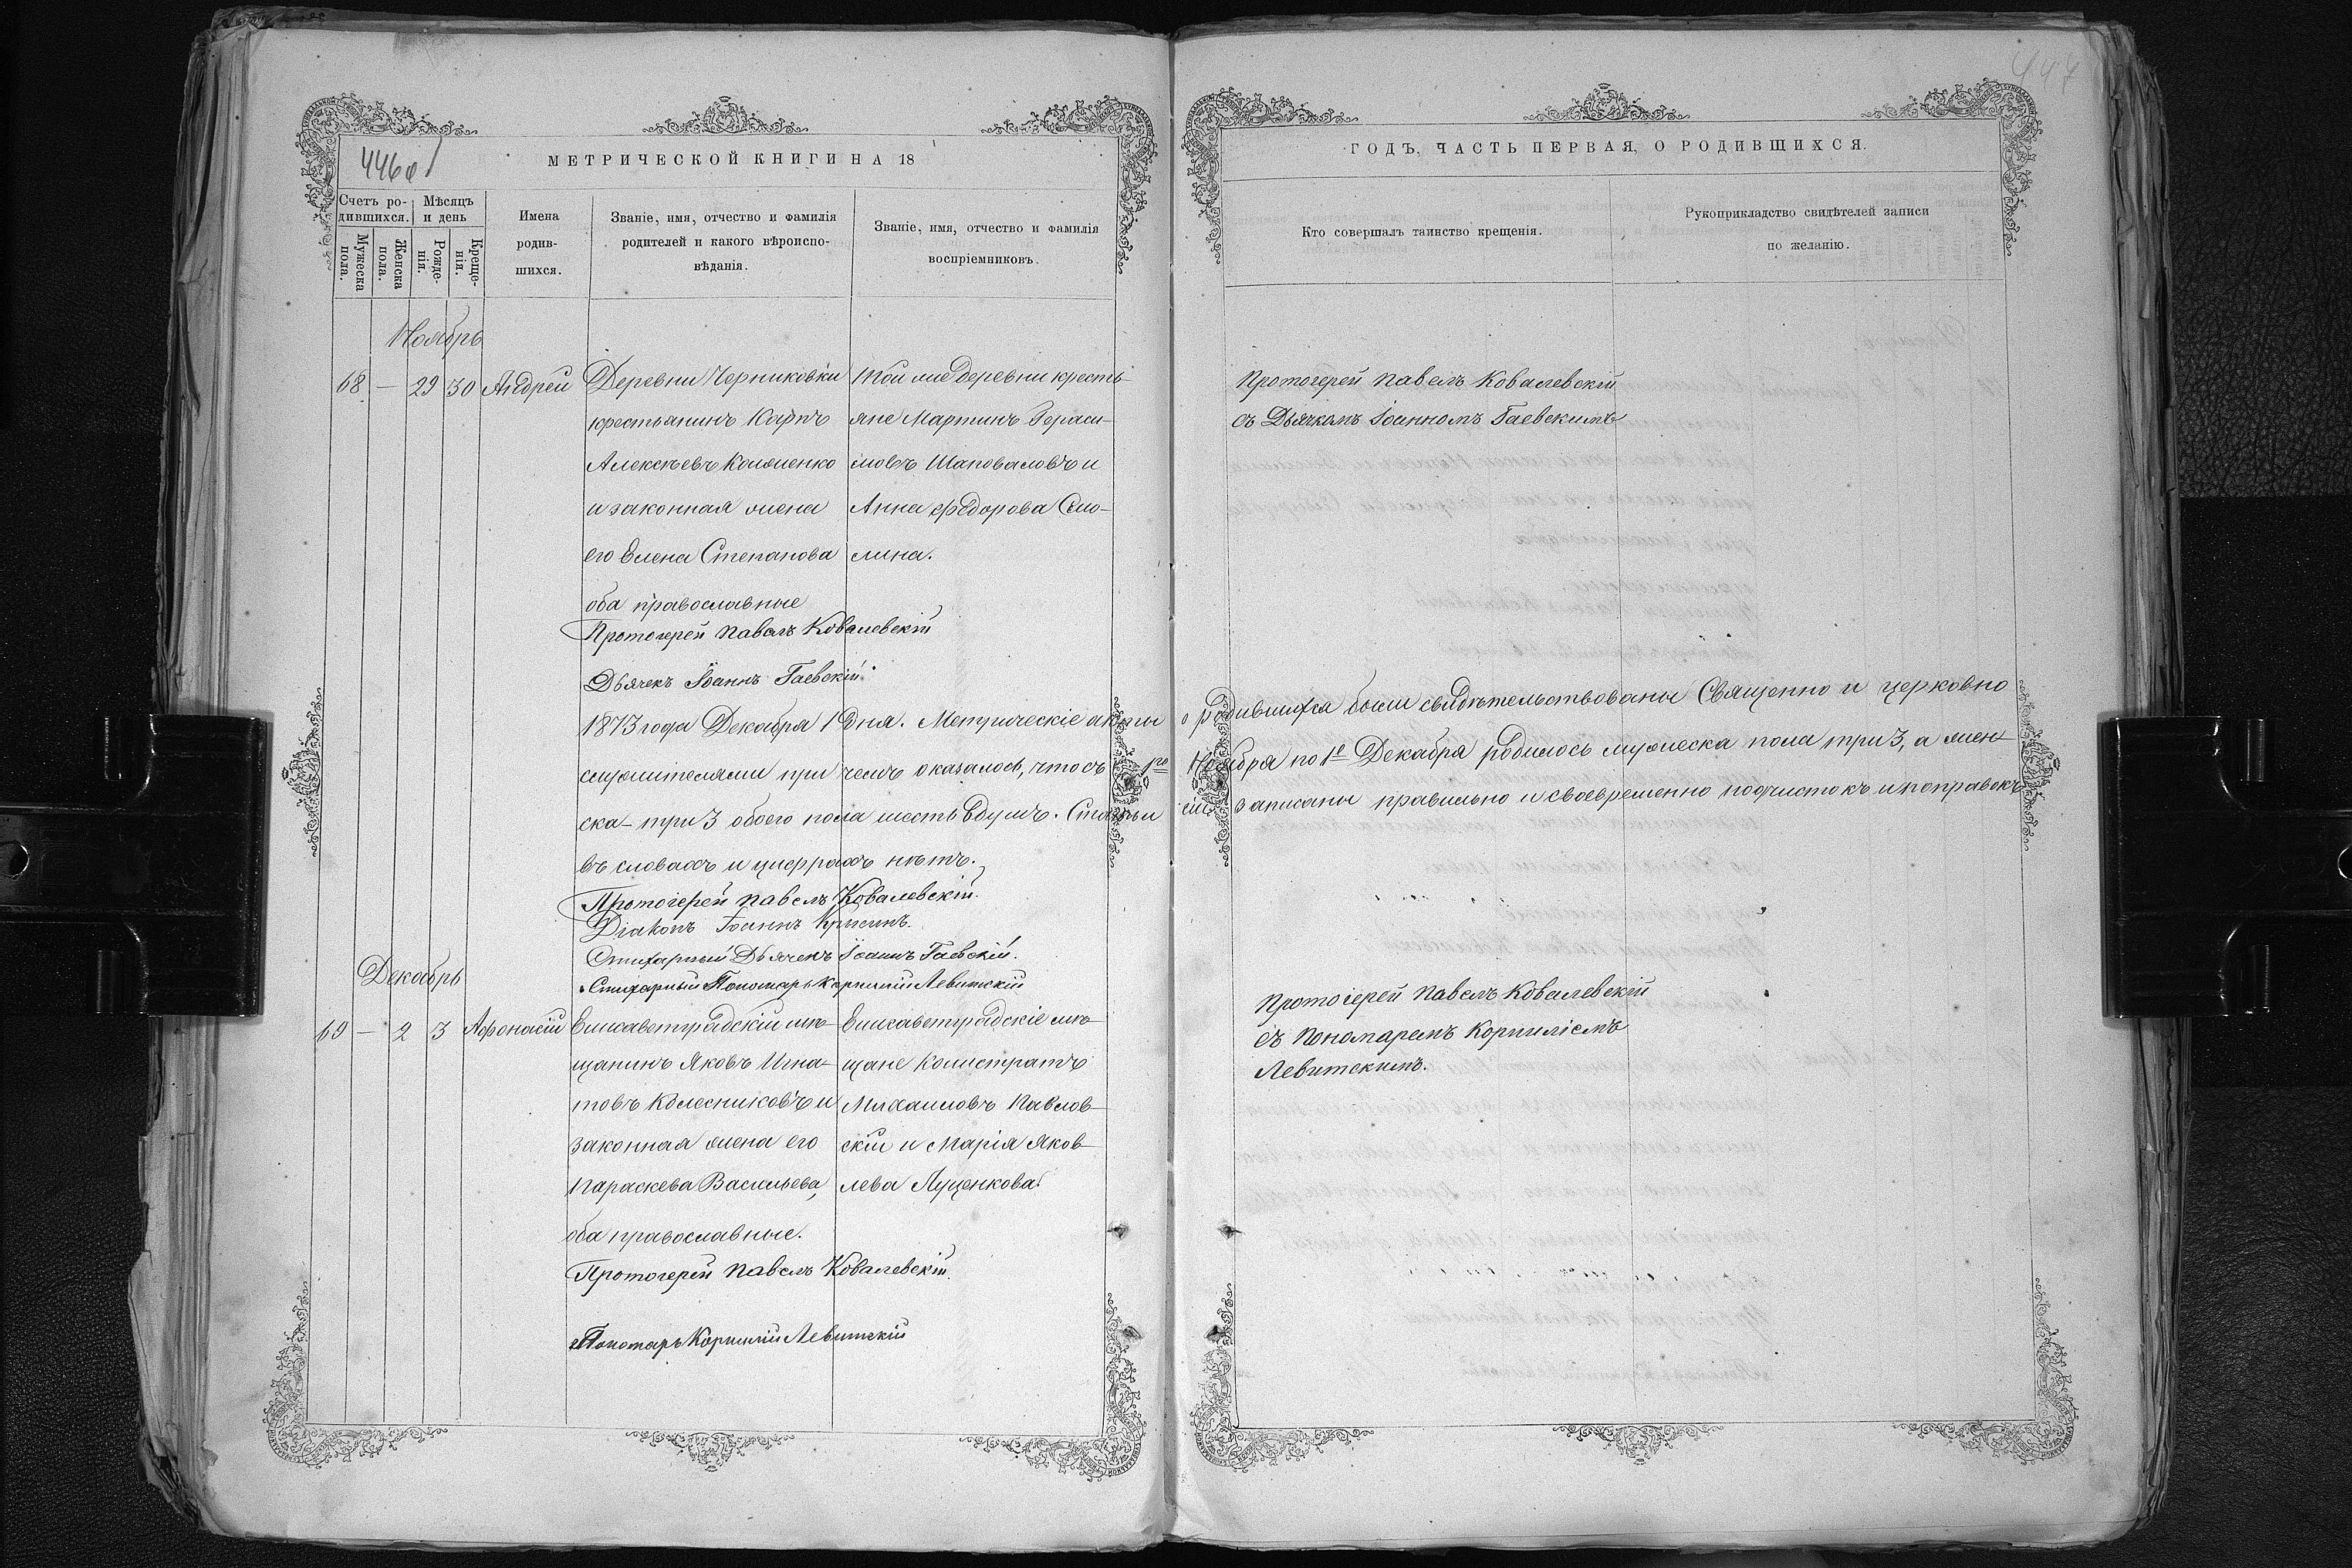 446об
МЕТРИЧЕСКОЙ КНИГИ НА 18
Счетъ ро-
дившихся.
Мѣсяцъ
и день
Мужеска
пола.
Женска
пола.
Рожде-
нія.
Креще-
нія.
Имена
родив-
шихся.
Званіе, имя, отчество и фамилія
родителей и какого вѣроиспо-
вѣданія.
Званіе, имя, отчество и фамилія
воспріемниковъ.
Ноябрь
68 — 29 30 Андрей
Деревни Черниковки
крестьянинъ Карпъ
Алексѣевъ Коломенко
и законная жена
его Елена Степанова
оба православные
Той же деревни кресть-
яне Мартинъ Гераси-
мовъ Шаповаловъ и
Анна Федорова
лина.
Протоіерей Павелъ Ковалевскій
Дьячекъ Іоаннъ Гаевскій.
1873 года Декабря 1 дня. Метрическіе акты
служителями при чемъ оказалось, что съ 1го
ска - три 3 обоего пола шесть 6 душъ. Статьи
въ словахъ и цифрахъ нѣтъ.
Протоіерей Павелъ Ковалевскій.
Діаконъ Іоаннъ
Стихарный Дьячекъ Іоаннъ Гаевскій.
Стихарный Пономарь Корнилій Левитскій
Декабрь
69 — 2 3 Афонасій
Елисаветградскій мѣ-
щанинъ Яковъ Игна-
товъ Колесниковъ и
законная жена его
Параскева Васильева,
оба православные.
Елисаветградскіе мѣ-
щане Калистратъ
Михаиловъ Павлов-
скій и Марія Яков-
лева Луценкова.
Протоіерей Павелъ Ковалевскій.
Пономарь Корнилій Левитскій
447
ГОДЪ, ЧАСТЬ ПЕРВАЯ, О РОДИВШИХСЯ.
Кто совершалъ таинство крещенія.
Рукоприкладство свидѣтелей записи
по желанію.
Протоіерей Павелъ Ковалевскій
съ Дьячкомъ Іоанномъ Гаевскимъ
о родившихся были свидѣтельствованы Священно и церковно
Ноября по 1е Декабря родилось мужеска пола три 3, а жен-
сіи записаны правильно и своевременно подчистокъ и поправокъ
Протоіерей Павелъ Ковалевскій
съ Пономаремъ Корниліемъ
Левитскимъ.